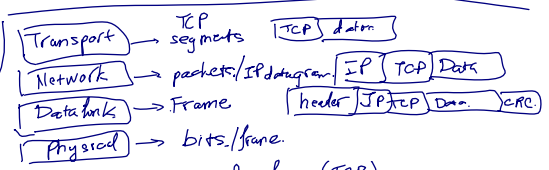 TCP
Transport → segments TCP data
Network → packets/IP datagram IP TCP Data
Data link → Frame header IP TCP Data CRC
Physical → bits/frame